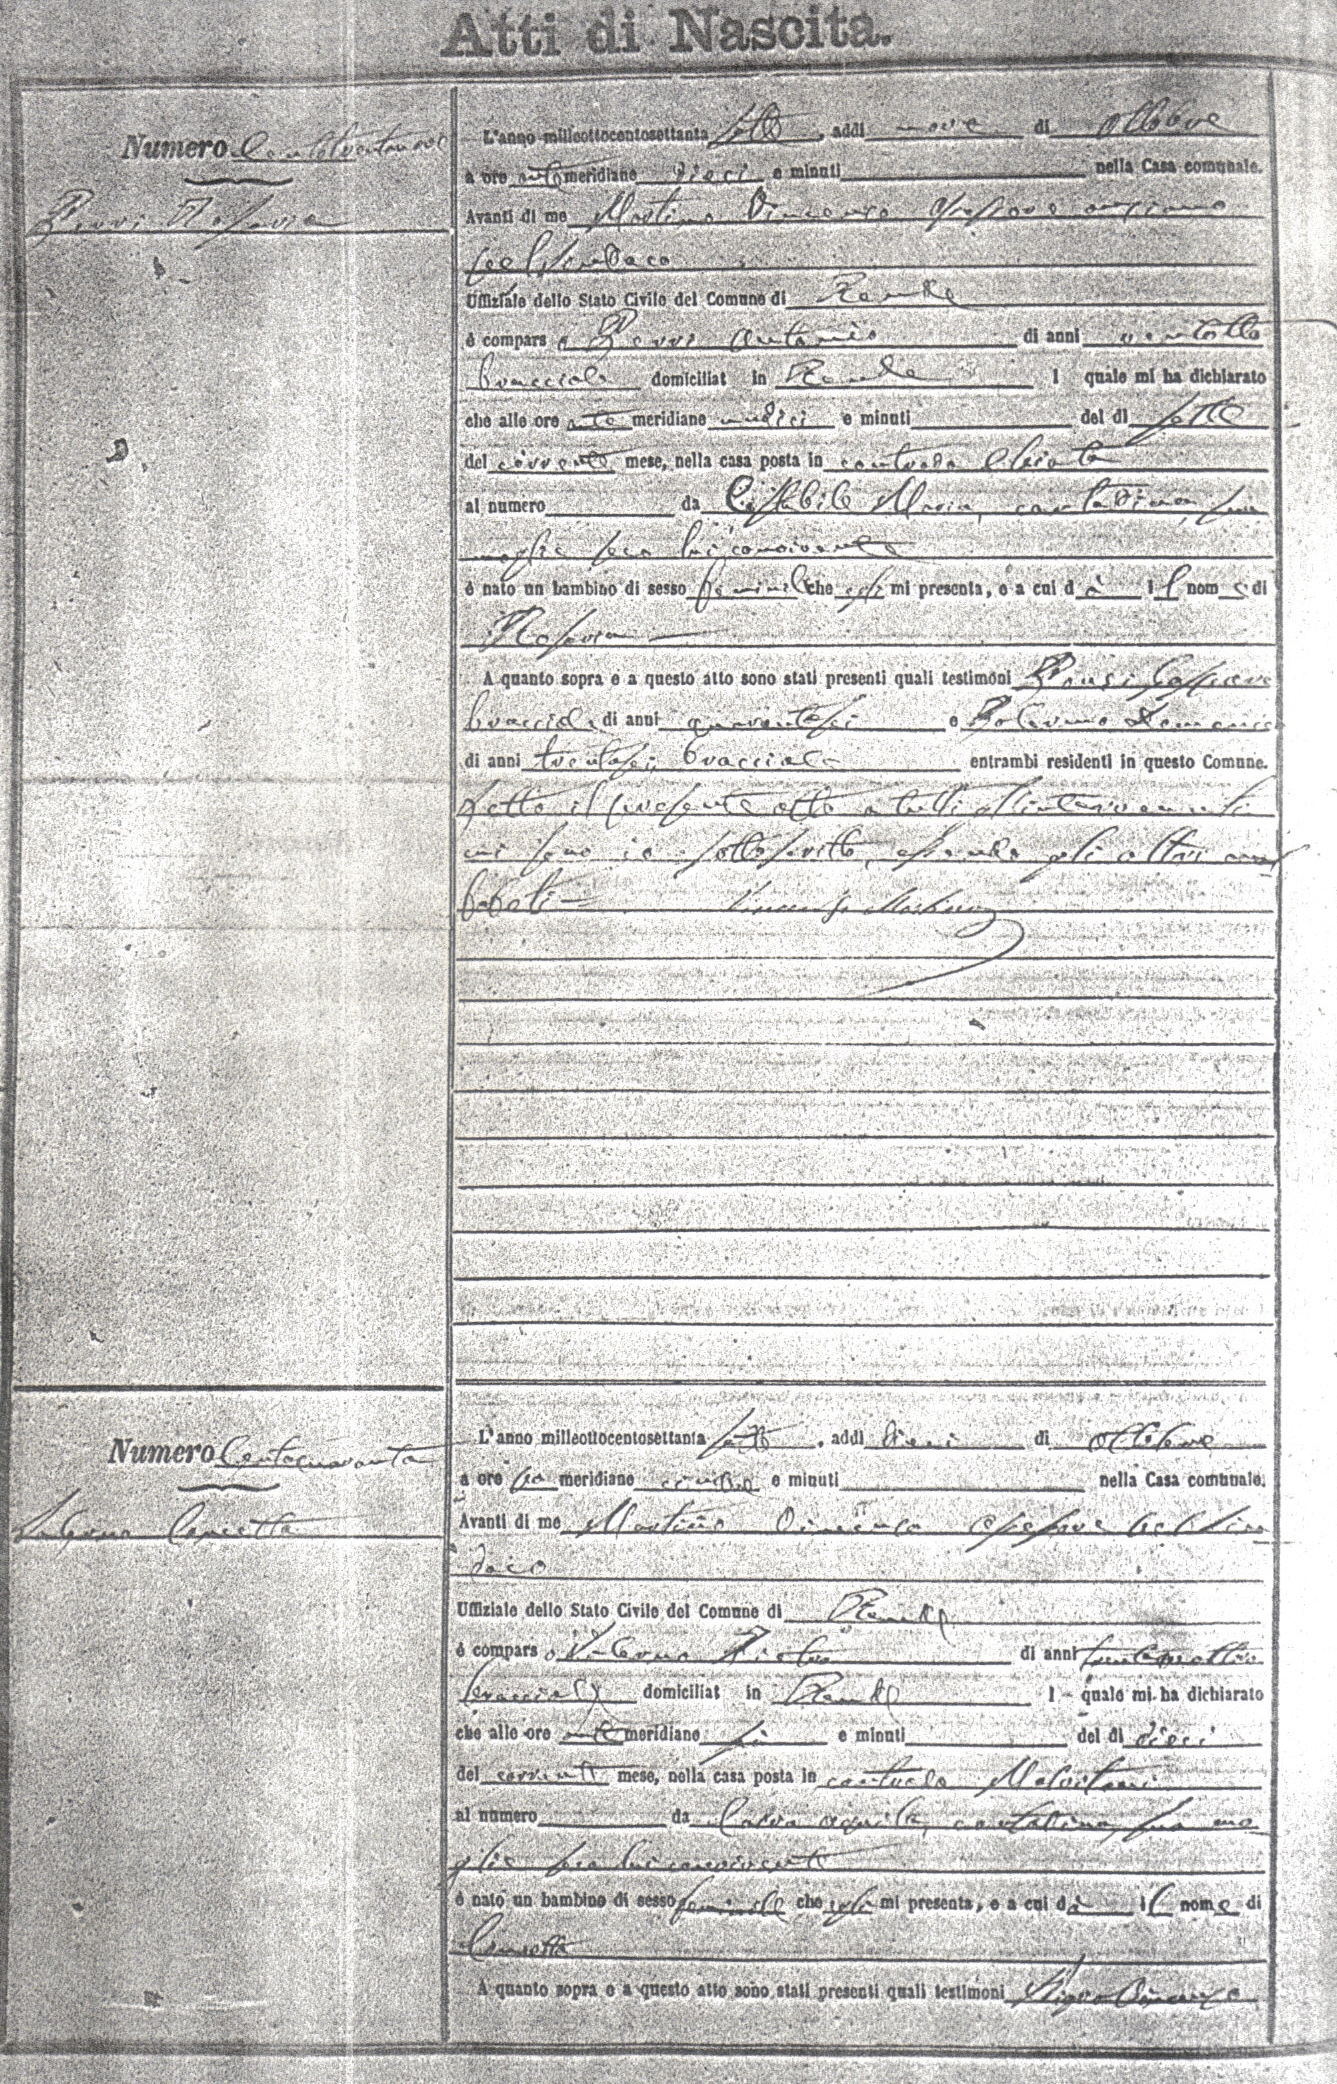 Atti di Nascita.
Numero Centotrentanove
L'anno milleottocentosettanta sette, addì nove di Ottobre
a ore ante meridiane dieci e minuti nella Casa comunale.
Avanti di me Martino Vincenzo Assessore anziano
pel Sindaco
Uffiziale dello Stato Civile del Comune di Rende
è compars o Antonio di anni ventotto
bracciale domiciliat in Rende l quale mi ha dichiarato
che alle ore ante meridiane undici e minuti del dì sette
del corrente mese, nella casa posta in contrada
al numero da Maria, contadina, sua
moglie seco lui convivente
è nato un bambino di sesso feminile che egli mi presenta, e a cui d à il nom e di
Rosaria
A quanto sopra e a questo atto sono stati presenti quali testimoni Gaspare
bracciale di anni quarantasei e Domenico
di anni trentasei, bracciale entrambi residenti in questo Comune.
Letto il presente atto a tutti gl'intervenuti
mi sono io sottoscritto, essendo gli altri anal
fabeti
Vincenzo Martino
Numero Centoquaranta
L'anno milleottocentosettanta sette, addì dieci di Ottobre
a ore po meridiane cinque e minuti nella Casa comunale.
Avanti di me Martino Vincenzo Assessore pel Sin
daco
Uffiziale dello Stato Civile del Comune di Rende
è compars o Pietro di anni
bracciale domiciliat in Rende l quale mi ha dichiarato
che alle ore ante meridiane sei e minuti del dì dieci
del corrente mese, nella casa posta in contrada
al numero da contadina, sua mo
glie seco lui convivente
è nato un bambino di sesso feminile che egli mi presenta, e a cui dà il nome di
Concetta
A quanto sopra e a questo atto sono stati presenti quali testimoni Vincenzo